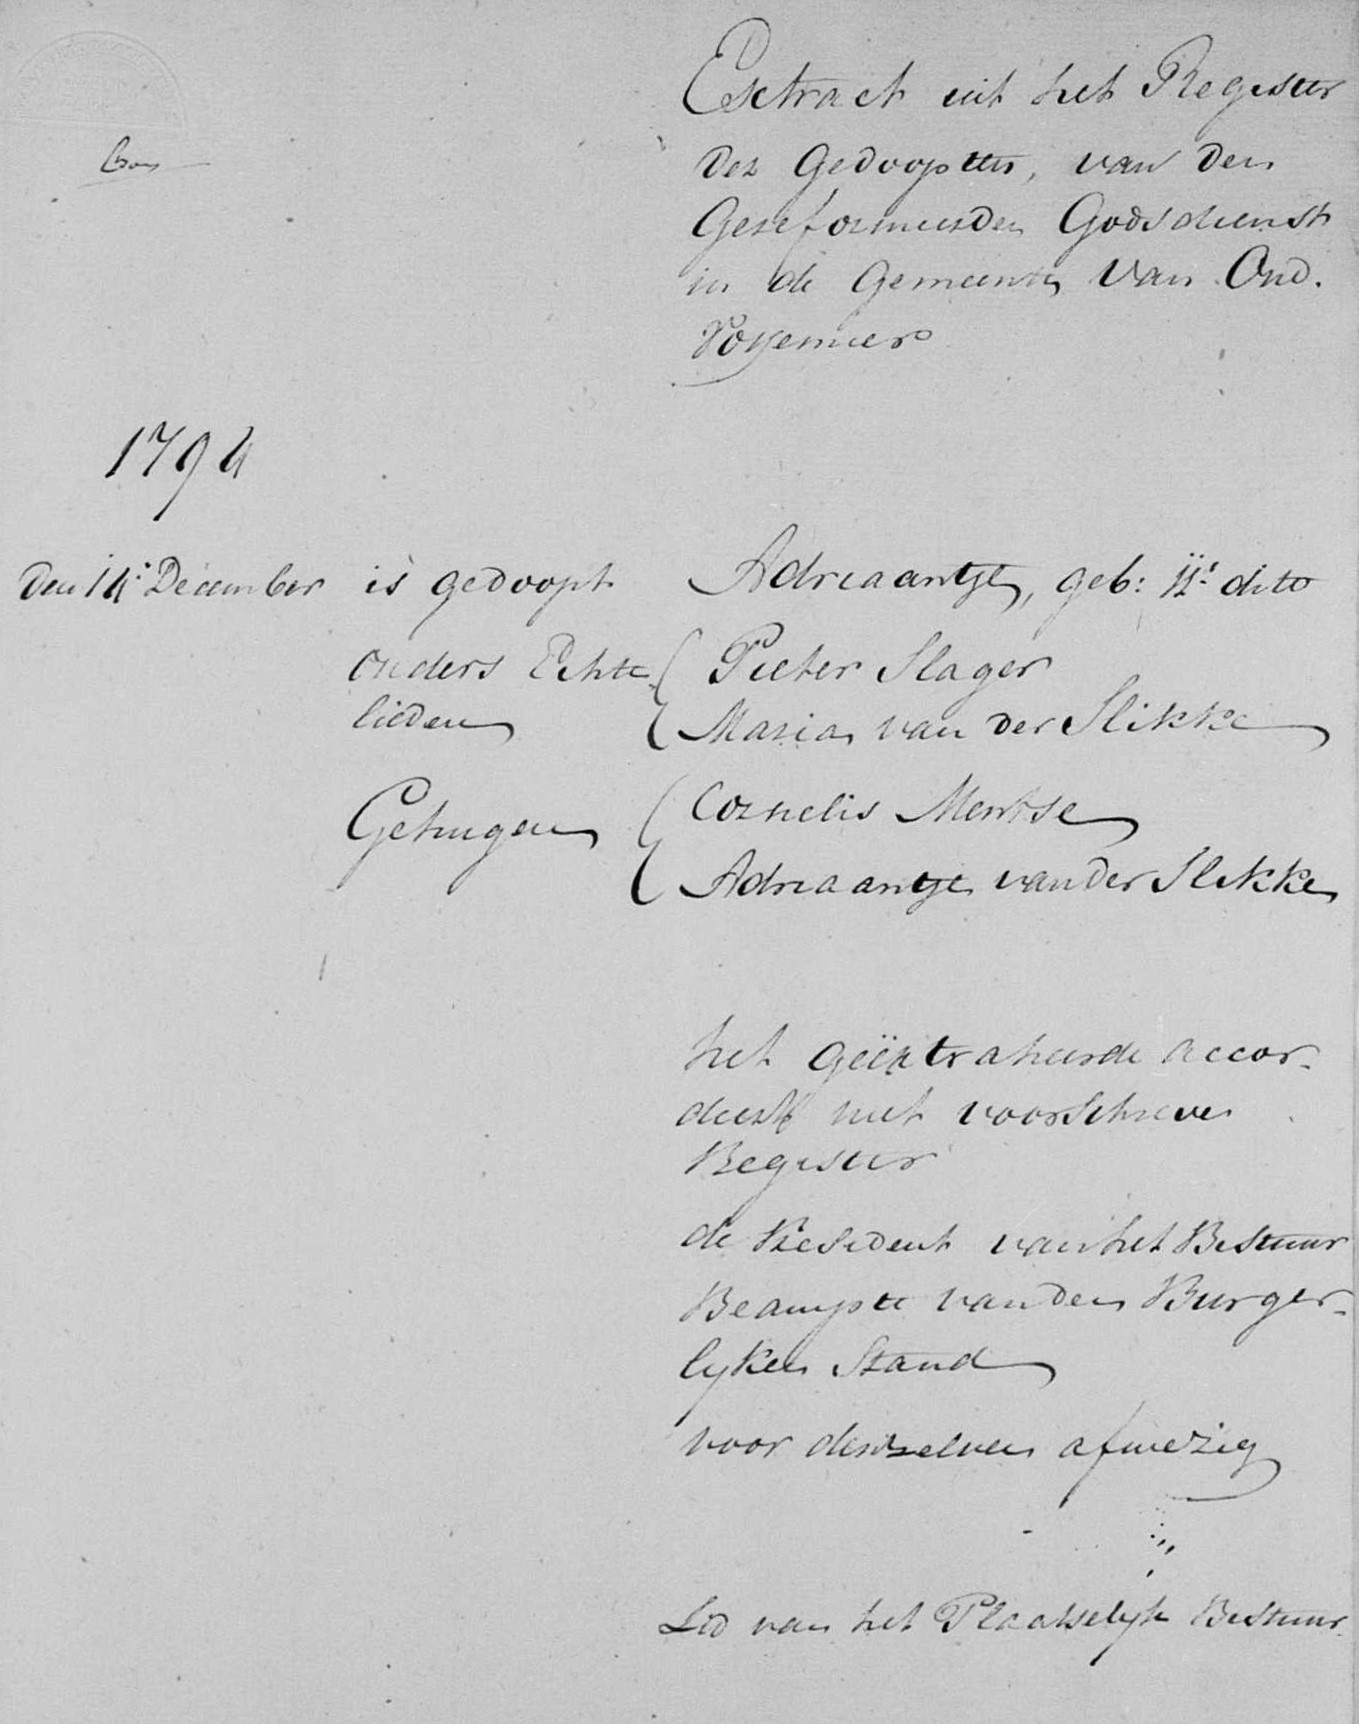 Extract uit het Register
der Gedoopten, van den
Gereformeerden Godsdienst
in de Gemeente van Oud.
Vossemeer
1794
Den 14e December is gedoopt Adriaantje, geb: 11e dito
Ouders Echte Pieter Slager
lieden Maria van der Slikke
Getuigen Cornelis Mentse
Adriaantje van der Slikke
het geëxtraheerde accor-
deert met voorschreven
Register
de President van het Bestuur
Beampte van den Burger-
lyken Stand
voor denzelven afwezig
Lid van het Plaatselyk Bestuur